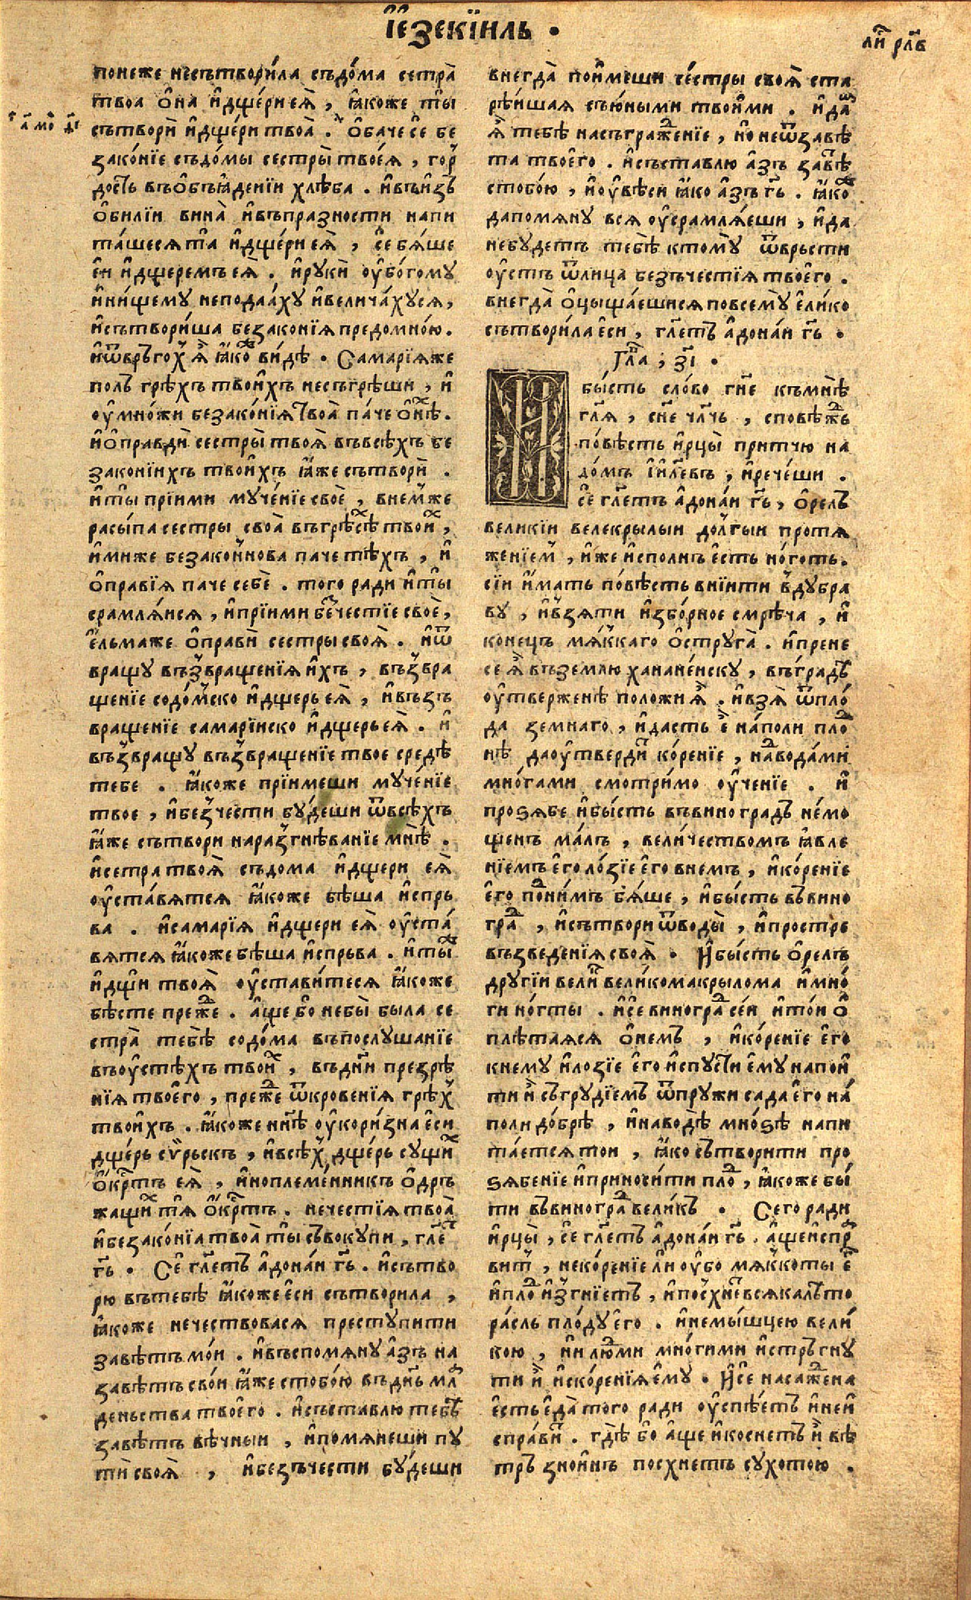 І҆езекїиль •
ли҃ рл҃в
понеже несътвори́ла съдо́ма сестра̀
твоа о҆на̀ и҆дще́ри еѧ̀ , ꙗ҆коже ты̀
сътворѝ и҆дще́ри твоа̀ . Ѻ҆баче се̑ бе
зако́нїе съдо́мы сестры̀ твоеѧ̀ , гор̾
дость въѡ҆бъꙗ҆де́нїи хлѣ́ба . и҆въи҆зъ
ѻ҆би́лїи вина̀ и҆въпра́зности напи
та́шесѧ та̀ и҆дще́ри еѧ̀ , се̑ бѧ́ше
е҆и и҆дще́ремъ еѧ̀ . и҆руки̑ оу҆бо́гому
и҆ни́щему неподаа́ху и҆велича́хусѧ ,
и҆сътвори́ша безако́нїѧ предомно́ю .
и҆ѿвръгохъ ѧ҆̀ ꙗ҆́ко ви́дѣ • Самарїѧже
полъ грѣ́хъ твои́хъ несъгрѣ́ши , и҆
оу҆мно́жи безако́нїѧ твоа̀ па́че ѻ҆нѣ̀ .
и҆ѻ҆правди̑ сестры̀ твоѧ̀ въвсѣ́хъ бе
зако́нїихъ твои́хъ ꙗ҆́же сътворѝ .
и҆ты̀ прїими муче́нїе своѐ , внем̾же
расы́па сестры свoа̀ въгрѣсѣ̀ твои̑ ,
и҆миже безако́ннова паче тѣ́хъ , и҆
ѻ҆прави́ѧ паче себѐ . того ради и҆ты̀
срамлѧ́исѧ , и҆прїими бе҃че́стїе своѐ ,
е҆льма́же ѻ҆правѝ сестры своѧ̀ . и҆ѿ
вращу̀ възвраще́нїѧ и҆́хъ , възвра
ще́нїе содо́мско и҆дщерь еѧ̀ , и҆възъ
враще́нїе самарїнско и҆дщерь еѧ̀ . и҆
възвращу̀ възвраще́нїе твое средѣ̀
тебе . ꙗ҆́коже прїимеши муче́нїе
твое , и҆без̾чести бу́деши ѿвсѣ́хъ
ꙗ҆́же сътвори нараз̾гнѣ́ванїе мнѣ̀ .
и҆сестра твоѧ̀ съдома и҆дщери еѧ̀
оу҆ста́вѧтсѧ ꙗ҆́коже бѣ́ша и҆спръ
ва . и҆самарїѧ и҆дщери еѧ̀ оу҆ста́
вѧтсѧ ꙗ҆́коже бѣ́ша и҆спръва . и҆ты̀
и҆дщи твоѧ̀ оу҆ста́витесѧ ꙗ҆́коже
бѣсте преже . а҆ще бо̀ небы̀ была се
стра̀ тебѣ̀ содо́ма въпослуша́нїе
въоу҆стѣхъ твои̑ , въдни̑ презрѣ́
нїѧ твоего̀ , преже ѿкрове́нїѧ грѣ̑х
твои́хъ . ꙗ҆́коже нн҃ѣ оу҆кори́зна е҆си
дщерь су́рьскъ , и҆всѣ́х дщерь сущи̑
ѻ҆́крⷭ҇тъ еѧ̀ , и҆ноплеме́нникъ ѻ҆дръ
жащи̑ тѧ̀ ѻ҆́крⷭ҇тъ . нечестїѧ твоа̀
и҆безако́нїа твоа̀ ты̀ съвокупи , гл҃е
гь҃ • Се̑ гл҃етъ а҆дона́и гь҃ . и҆сътво
рю въ тебѣ̀ ꙗ҆́коже е҆си сътвори́ла ,
ꙗ҆́коже нечествовасѧ преступити
завѣ́тъ мо́и . и҆въспомѧну а҆́зъ на
завѣ́тъ сво́и ꙗ҆́же стобо́ю въ днь҃ мл҃
деньства твоего̀ . и҆съста́влю тебѣ̀
завѣ́тъ вѣчныи , и҆помѧнеши пу
ти своѧ̀ , и҆безъче́сти бу́деши
внегда̀ пои́меши сестры своѧ̀ ста
рѣ́ишаѧ съю́ными твои́ми . и҆да̑м
ѧ҆̀ тебѣ̀ насъграже́нїе , и҆о неѿ завѣ́
та твоего̀ . и҆съста́влю а҆́зъ завѣ̑
стобо́ю , и҆оу҆вѣ́си ꙗ҆́ко а҆́зъ гь҃ . ꙗ҆́ко̑
дапомѧну всѧ оу҆срамлѧ́еши , и҆да
небудетъ тебѣ̀ ктому̀ ѿврьсти
оу҆стъ ѿлица безъче́стїѧ твоего̀ .
внегда̀ ѻ҆цыща́ешисѧ повсему̀ е҆ли́ко
сътворила е҆си , гл҃етъ а҆дона́и гь҃ •
Гл҃а , з҃і •
И҆ бы́сть сло́во гн҃е къмнѣ̀
гл҃ѧ , сн҃е чл҃чь , сповѣ́жь
по́вѣсть и҆рцы̀ при́тчю на
до́мъ і҆и҃левъ , и҆рече́ши .
се̑ гл҃етъ а҆дона́и гь҃ , ѻ҆ре́лъ
великїи велекрылыи до́лгыи протѧ
же́нїем , и҆же и҆спо́лнъ е҆́сть но́готь .
сїи и҆́мать по́вѣсть внїити в̾дубра
ву , и҆взѧти и҆збо́рное смрѣ́ча , и҆
конецъ мѧ́ккаго ѻ҆струга̀ . и҆прене
се ѧ҆̀ въземлю хананеиску , въгра́дъ
оу҆твержен̾ѣ положи ѧ҆̀ . и҆взѧ̀ ѿпло́
да земна́го , и҆дасть е҆̀ на́поли пло̑
нѣ̀ даоу҆твердѝ коренїе , наводами
многами смотримо оу҆че́нїе . и҆
прозѧ́бе и҆бы́сть въвиноградъ не́мо
щенъ ма́лъ , вели́чествомъ ꙗ҆вле
нїемъ е҆го̀ ло́зїе е҆го̀ внемъ , и҆коренїе
е҆го̀ по̑нимъ бѧ́ше , и҆бы́сть въвино
гра̑ , и҆сътвори ѿводы̀ , и҆простре
възведе́нїѧ своѧ̀ • И҆бы́сть ѻ҆ре́лъ
другїи вели̑и вели́комакрылома и҆мно́
ги но́гты . и҆се̑ виногра̑ се́и и҆то́и ѻ҆
плѣ́таѧсѧ ѻ҆немъ , и҆коре́нїе е҆го̀
кнему и҆лозїе е҆го̀ и҆спусти е҆му напои
ти и҆̀ съгрудїемъ ѿпру́жи сада е҆го̀ на́
поли до́брѣ , и҆наводѣ̀ мно́зѣ напи
та́етсѧ то́и , ꙗ҆́ко сътворити про
зѧбе́нїе и҆приноси́ти пло̑ , ꙗ҆́коже бы́
ти въвиногра̑ вели́къ • Сего ради
и҆рцы̀ , се̑ гл҃етъ а҆дона́и гь҃ . а҆щеиспр̑
вит , некоре́нїе ли оу҆бо мѧккоты е҆̑
и҆пло̑ и҆згнїетъ , и҆посхнетъ всѧка лѣто
расль пло́ду е҆го̀ . и҆немы́шцею вели
кою , ни людми многими и҆стръгну
ти и҆̀ и҆скоренїѧ е҆му̀ . И҆се̑ насаже́на
е҆сть е҆да̀ того ради оу҆спѣ́етъ и҆неи
справи̑ . гдѣ́ бо а҆ще и҆коснетъ и҆̀ вѣ
тръ знои́нъ посхнетъ сухотою .